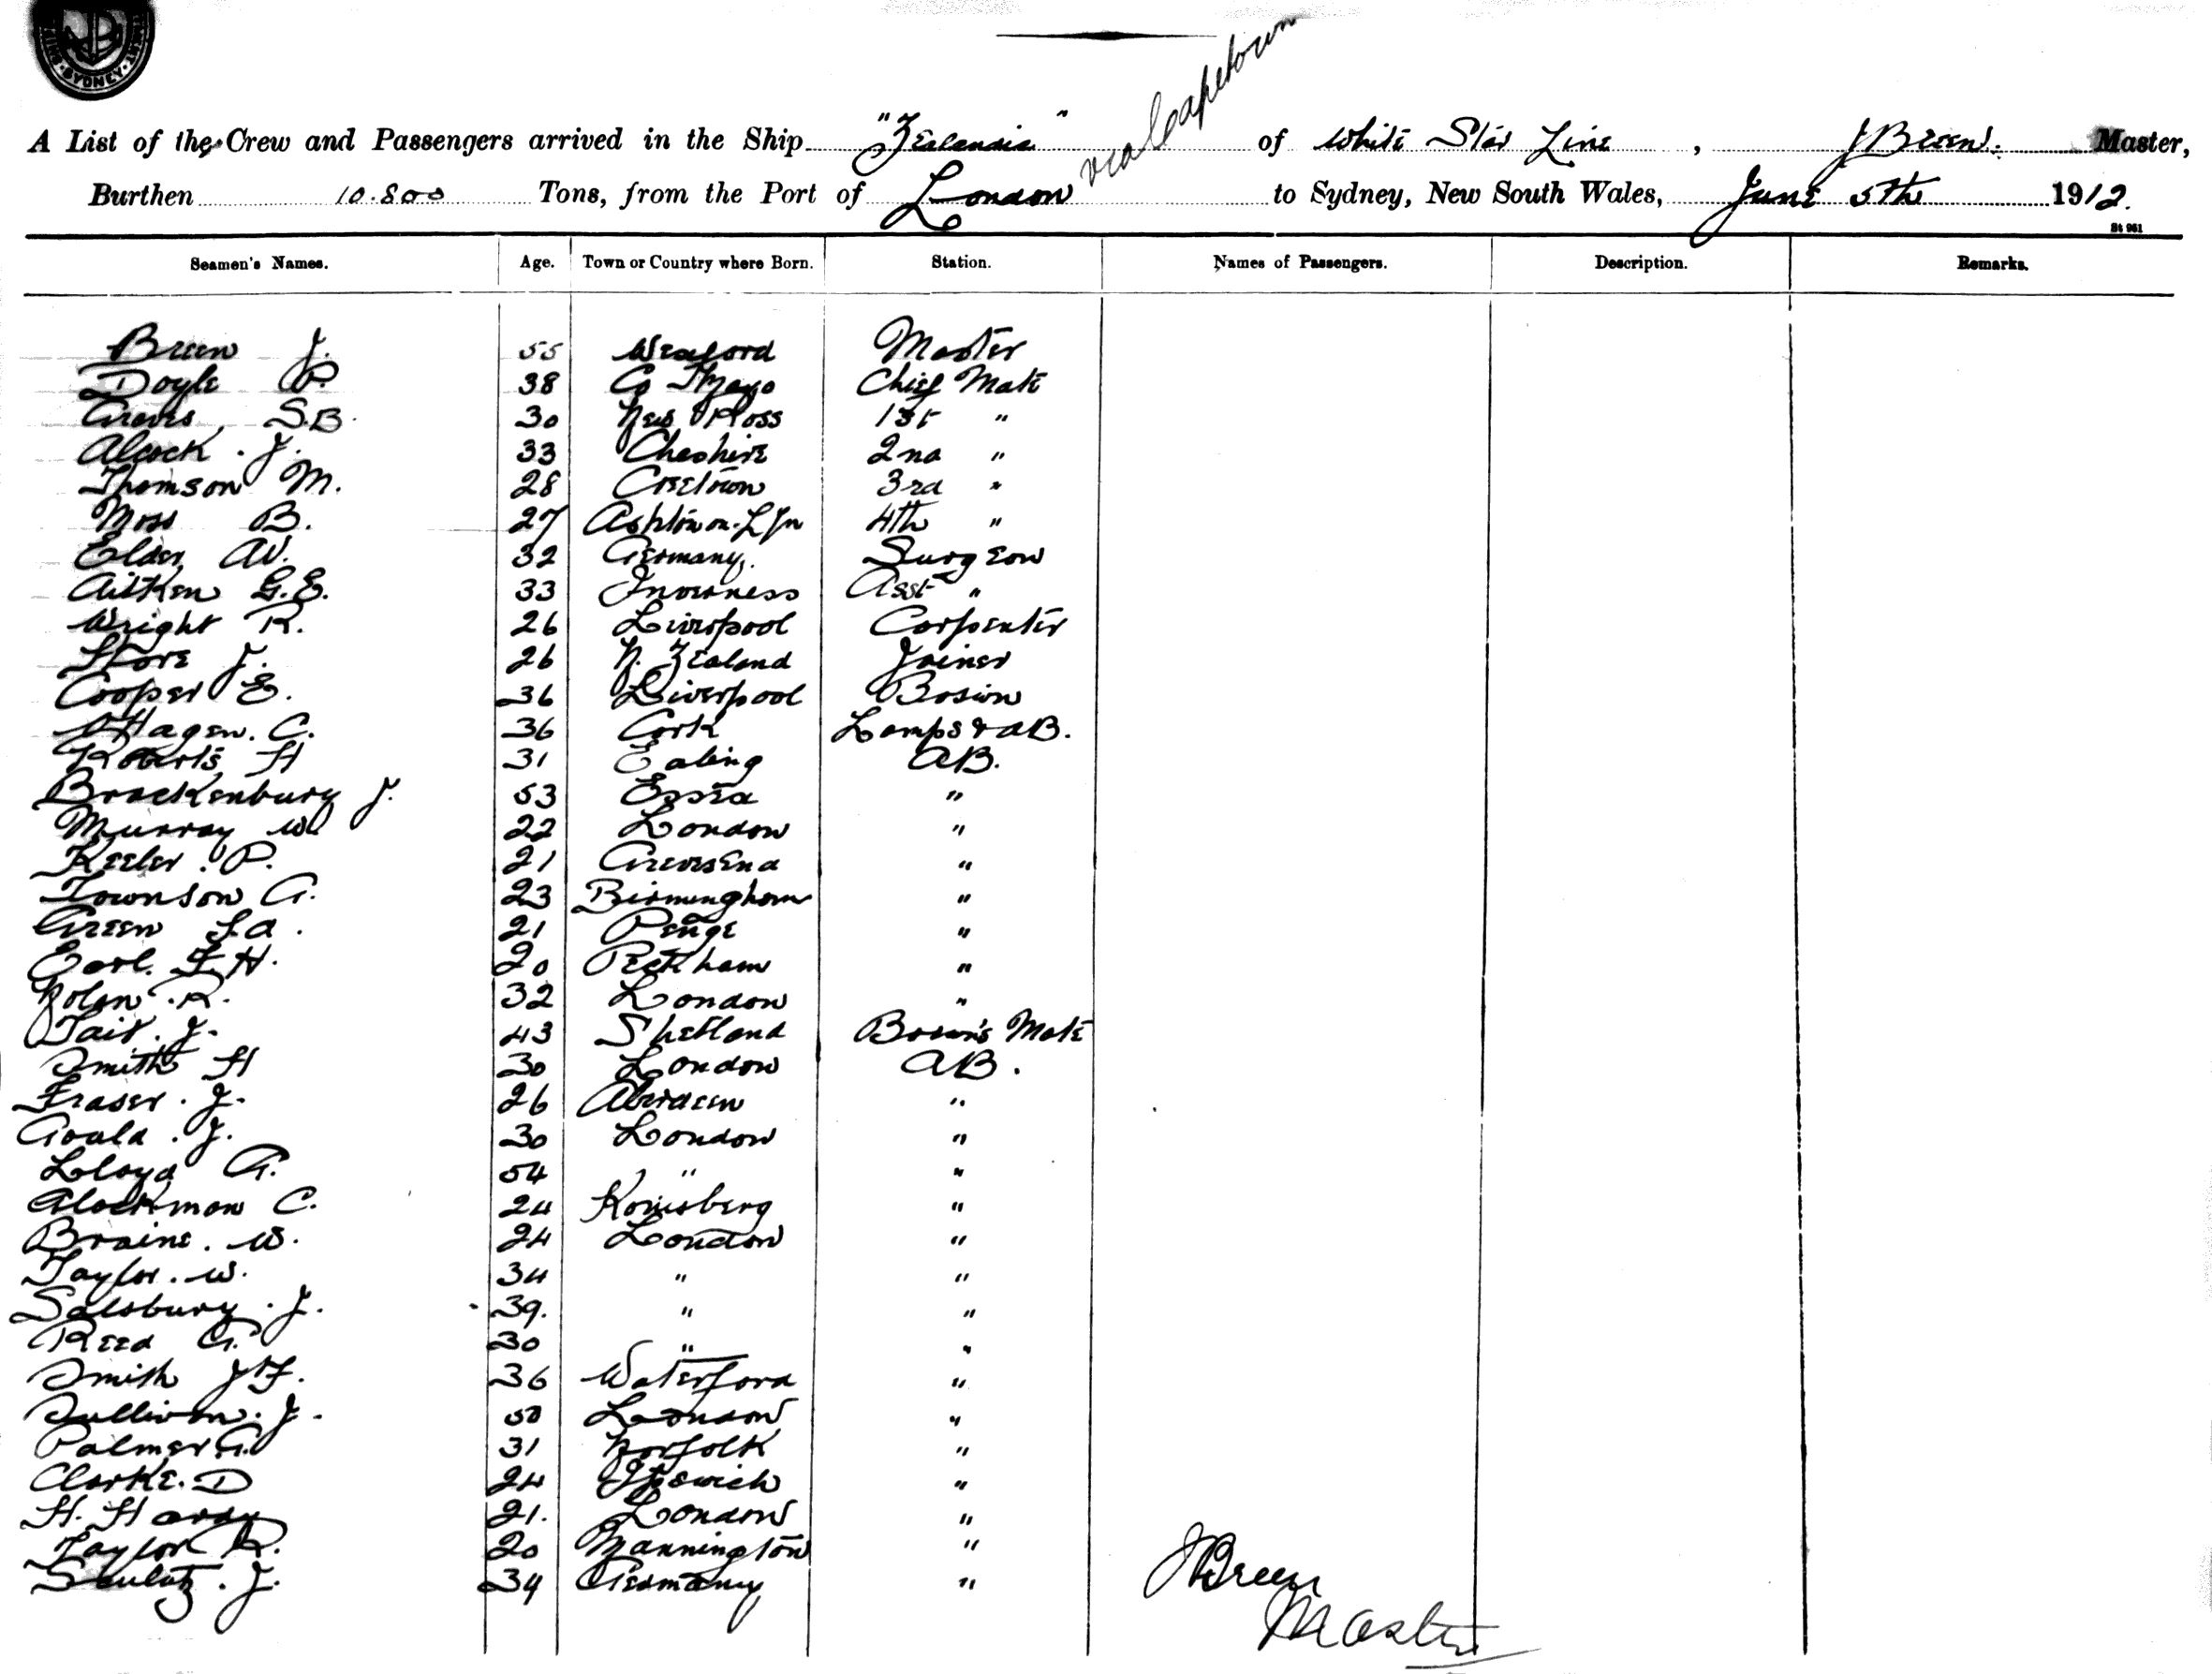 SYDNEY
via Capetown
A List of the Crew and Passengers arrived in the Ship "Zealandia" of White Star Line, J Breen. Master,
Burthen 10.800 Tons, from the Port of London to Sydney, New South Wales, June 5th 1912.
St 961
Seamen's Names. Age. Town or Country where Born. Station. Names of Passengers. Description. Remarks.
Breen J. 55 Wexford Master
Doyle P. 38 Co Mayo Chief Mate
Graves, S.B. 30 New Ross 1st "
Alcock. J. 33 Cheshire 2nd "
Thomson M. 28 3rd "
Moss B. 27 Ashton on. Lyn 4th "
Elder AW. 32 Germany. Surgeon
Aitken G.E. 33 Inverness Asst "
Wright R. 26 Liverpool Carpenter
Store J. 26 N. Zealand Joiner
Cooper E. 36 Liverpool Bosun
O'Hagen. C. 36 Cork Lamps & AB.
Roberts H 31 Ealing AB.
Brackenbury J. 53 Essex "
Murray W 22 London "
Keeler. P. 21 Gravesend "
Townson G. 23 Birmingham "
Green F.A. 21 Penge "
Earl. F.H. 20 Peckham "
Nolan. R. 32 London "
Tait. J. 43 Shetland Bosun's Mate
Smith H 30 London AB.
Fraser. J. 26 Aberdeen "
Gould. J. 30 London "
Lloyd G. 54 " "
Glockman C. 24 Konisberg "
Braine. W. 24 London "
Taylor. W. 34 " "
Salsbury. J. 39. " "
Reed G. 30 " "
Smith J.F. 36 Waterford "
Sullivan. J. 50 London "
Palmer G. 31 Norfolk "
Clarke. D 24 Ipswich "
H. Hardy 21. London "
Taylor R. 20 Mannington "
Schulz. J. 34 Germany "
J Breen
Master